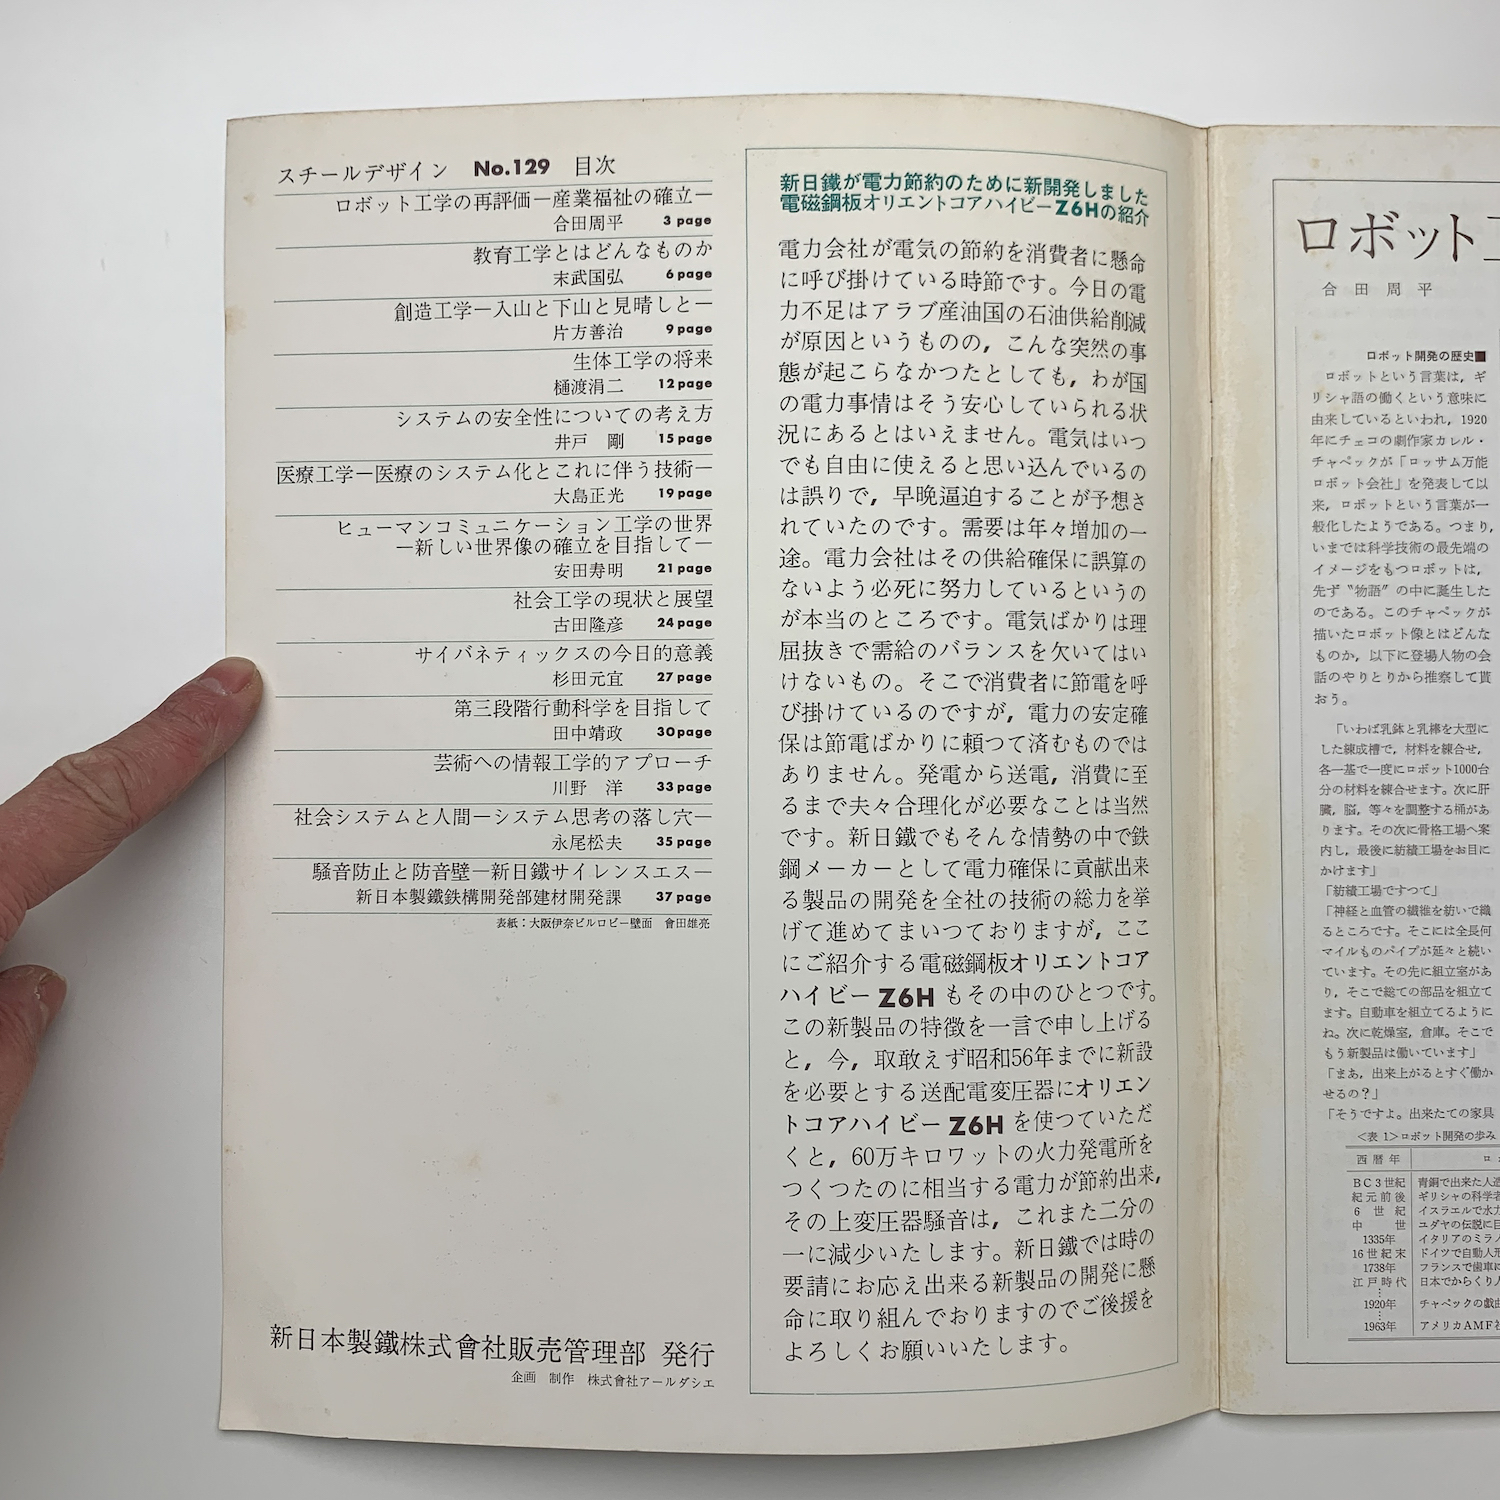 スチールデザイン No.129 目次
ロボット工学の再評価―産業福祉の確立―
合田周平 3 page
教育工学とはどんなものか
末武国弘 6 page
創造工学―入山と下山と見晴しと―
片方善治 9 page
生体工学の将来
樋渡涓二 12 page
システムの安全性についての考え方
井戸 剛 15 page
医療工学―医療のシステム化とこれに伴う技術―
大島正光 19 page
ヒューマンコミュニケーション工学の世界
―新しい世界像の確立を目指して―
安田寿明 21 page
社会工学の現状と展望
古田隆彦 24 page
サイバネティックスの今日的意義
杉田元宜 27 page
第三段階行動科学を目指して
田中靖政 30 page
芸術への情報工学的アプローチ
川野 洋 33 page
社会システムと人間―システム思考の落し穴―
永尾松夫 35 page
騒音防止と防音壁―新日鐵サイレンスエス―
新日本製鐵鉄構開発部建材開発課 37 page
表紙:大阪伊奈ビルロビー壁面 會田雄亮
新日本製鐵株式會社販売管理部 発行
企画 制作 株式會社アールダシエ
新日鐵が電力節約のために新開発しました
電磁鋼板オリエントコアハイビーZ6Hの紹介
電力会社が電気の節約を消費者に懸命
に呼び掛けている時節です。今日の電
力不足はアラブ産油国の石油供給削減
が原因というものの,こんな突然の事
態が起こらなかつたとしても,わが国
の電力事情はそう安心していられる状
況にあるとはいえません。電気はいつ
でも自由に使えると思い込んでいるの
は誤りで,早晩逼迫することが予想さ
れていたのです。需要は年々増加の一
途。電力会社はその供給確保に誤算の
ないよう必死に努力しているというの
が本当のところです。電気ばかりは理
屈抜きで需給のバランスを欠いてはい
けないもの。そこで消費者に節電を呼
び掛けているのですが,電力の安定確
保は節電ばかりに頼つて済むものでは
ありません。発電から送電,消費に至
るまで夫々合理化が必要なことは当然
です。新日鐵でもそんな情勢の中で鉄
鋼メーカーとして電力確保に貢献出来
る製品の開発を全社の技術の総力を挙
げて進めてまいつておりますが,ここ
にご紹介する電磁鋼板オリエントコア
ハイビー Z6H もその中のひとつです。
この新製品の特徴を一言で申し上げる
と,今,取敢えず昭和56年までに新設
を必要とする送配電変圧器にオリエン
トコアハイビー Z6H を使つていただ
くと,60万キロワットの火力発電所を
つくつたのに相当する電力が節約出来,
その上変圧器騒音は,これまた二分の
一に減少いたします。新日鐵では時の
要請にお応え出来る新製品の開発に懸
命に取り組んでおりますのでご後援を
よろしくお願いいたします。
ロボット工
合田周平
ロボット開発の歴史■
ロボットという言葉は,ギ
リシャ語の働くという意味に
由来しているといわれ,1920
年にチェコの劇作家カレル・
チャペックが「ロッサム万能
ロボット会社」を発表して以
来,ロボットという言葉が一
般化したようである。つまり,
いまでは科学技術の最先端の
イメージをもつロボットは,
先ず〝物語〟の中に誕生した
のである。このチャペックが
描いたロボット像とはどんな
ものか,以下に登場人物の会
話のやりとりから推察して貰
おう。
「いわば乳鉢と乳棒を大型に
した練成槽で,材料を練合せ,
各一基で一度にロボット1000台
分の材料を練合せます。次に肝
臓,脳,等々を調整する桶があ
ります。その次に骨格工場へ案
内し,最後に紡績工場をお目に
かけます」
「紡績工場ですつて」
「神経と血管の繊維を紡いで織
るところです。そこには全長何
マイルものパイプが延々と続い
ています。その先に組立室があ
り,そこで総ての部品を組立て
ます。自動車を組立てるように
ね。次に乾燥室,倉庫。そこで
もう新製品は働いています」
「まあ,出来上がるとすぐ働か
せるの?」
「そうですよ。出来たての家具
<表 1>ロボット開発の歩み
西暦年 ロ
BC3世紀 青銅で出来た人造
紀元前後 ギリシャの科学者
6世紀 イスラエルで水力
中世 ユダヤの伝説に目
1335年 イタリアのミラノ
16世紀末 ドイツで自動人形
1738年 フランスで歯車に
江戸時代 日本でからくり人
1920年 チャペックの戯曲
1963年 アメリカAMF社